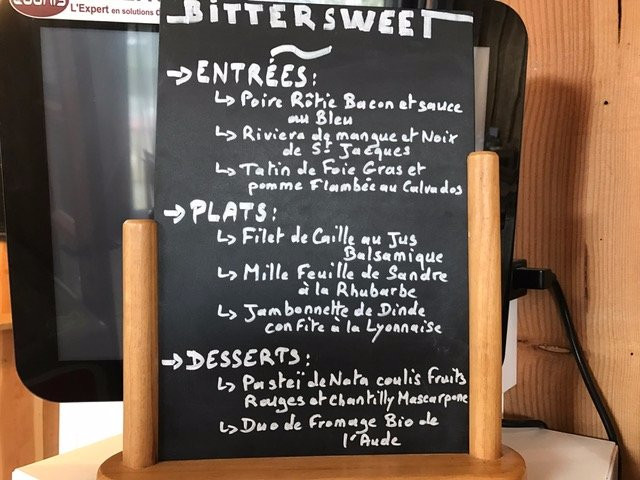 L'Expert en solutions
BITTERSWEET
→ ENTRÉES:
↳ Poire Rôtie Bacon et sauce
au Bleu
↳ Riviera de mangue et Noix
de St Jacques
↳ Tatin de Foie Gras et
pomme Flambée au Calvados
→ PLATS:
↳ Filet de Caille au Jus
Balsamique
↳ Mille Feuille de Sandre
à la Rhubarbe
↳ Jambonnette de Dinde
confite à la Lyonnaise
→ DESSERTS:
↳ Pasteï de Nata coulis Fruits
Rouges et Chantilly Mascarpone
↳ Duo de Fromage Bio de
l'Aude